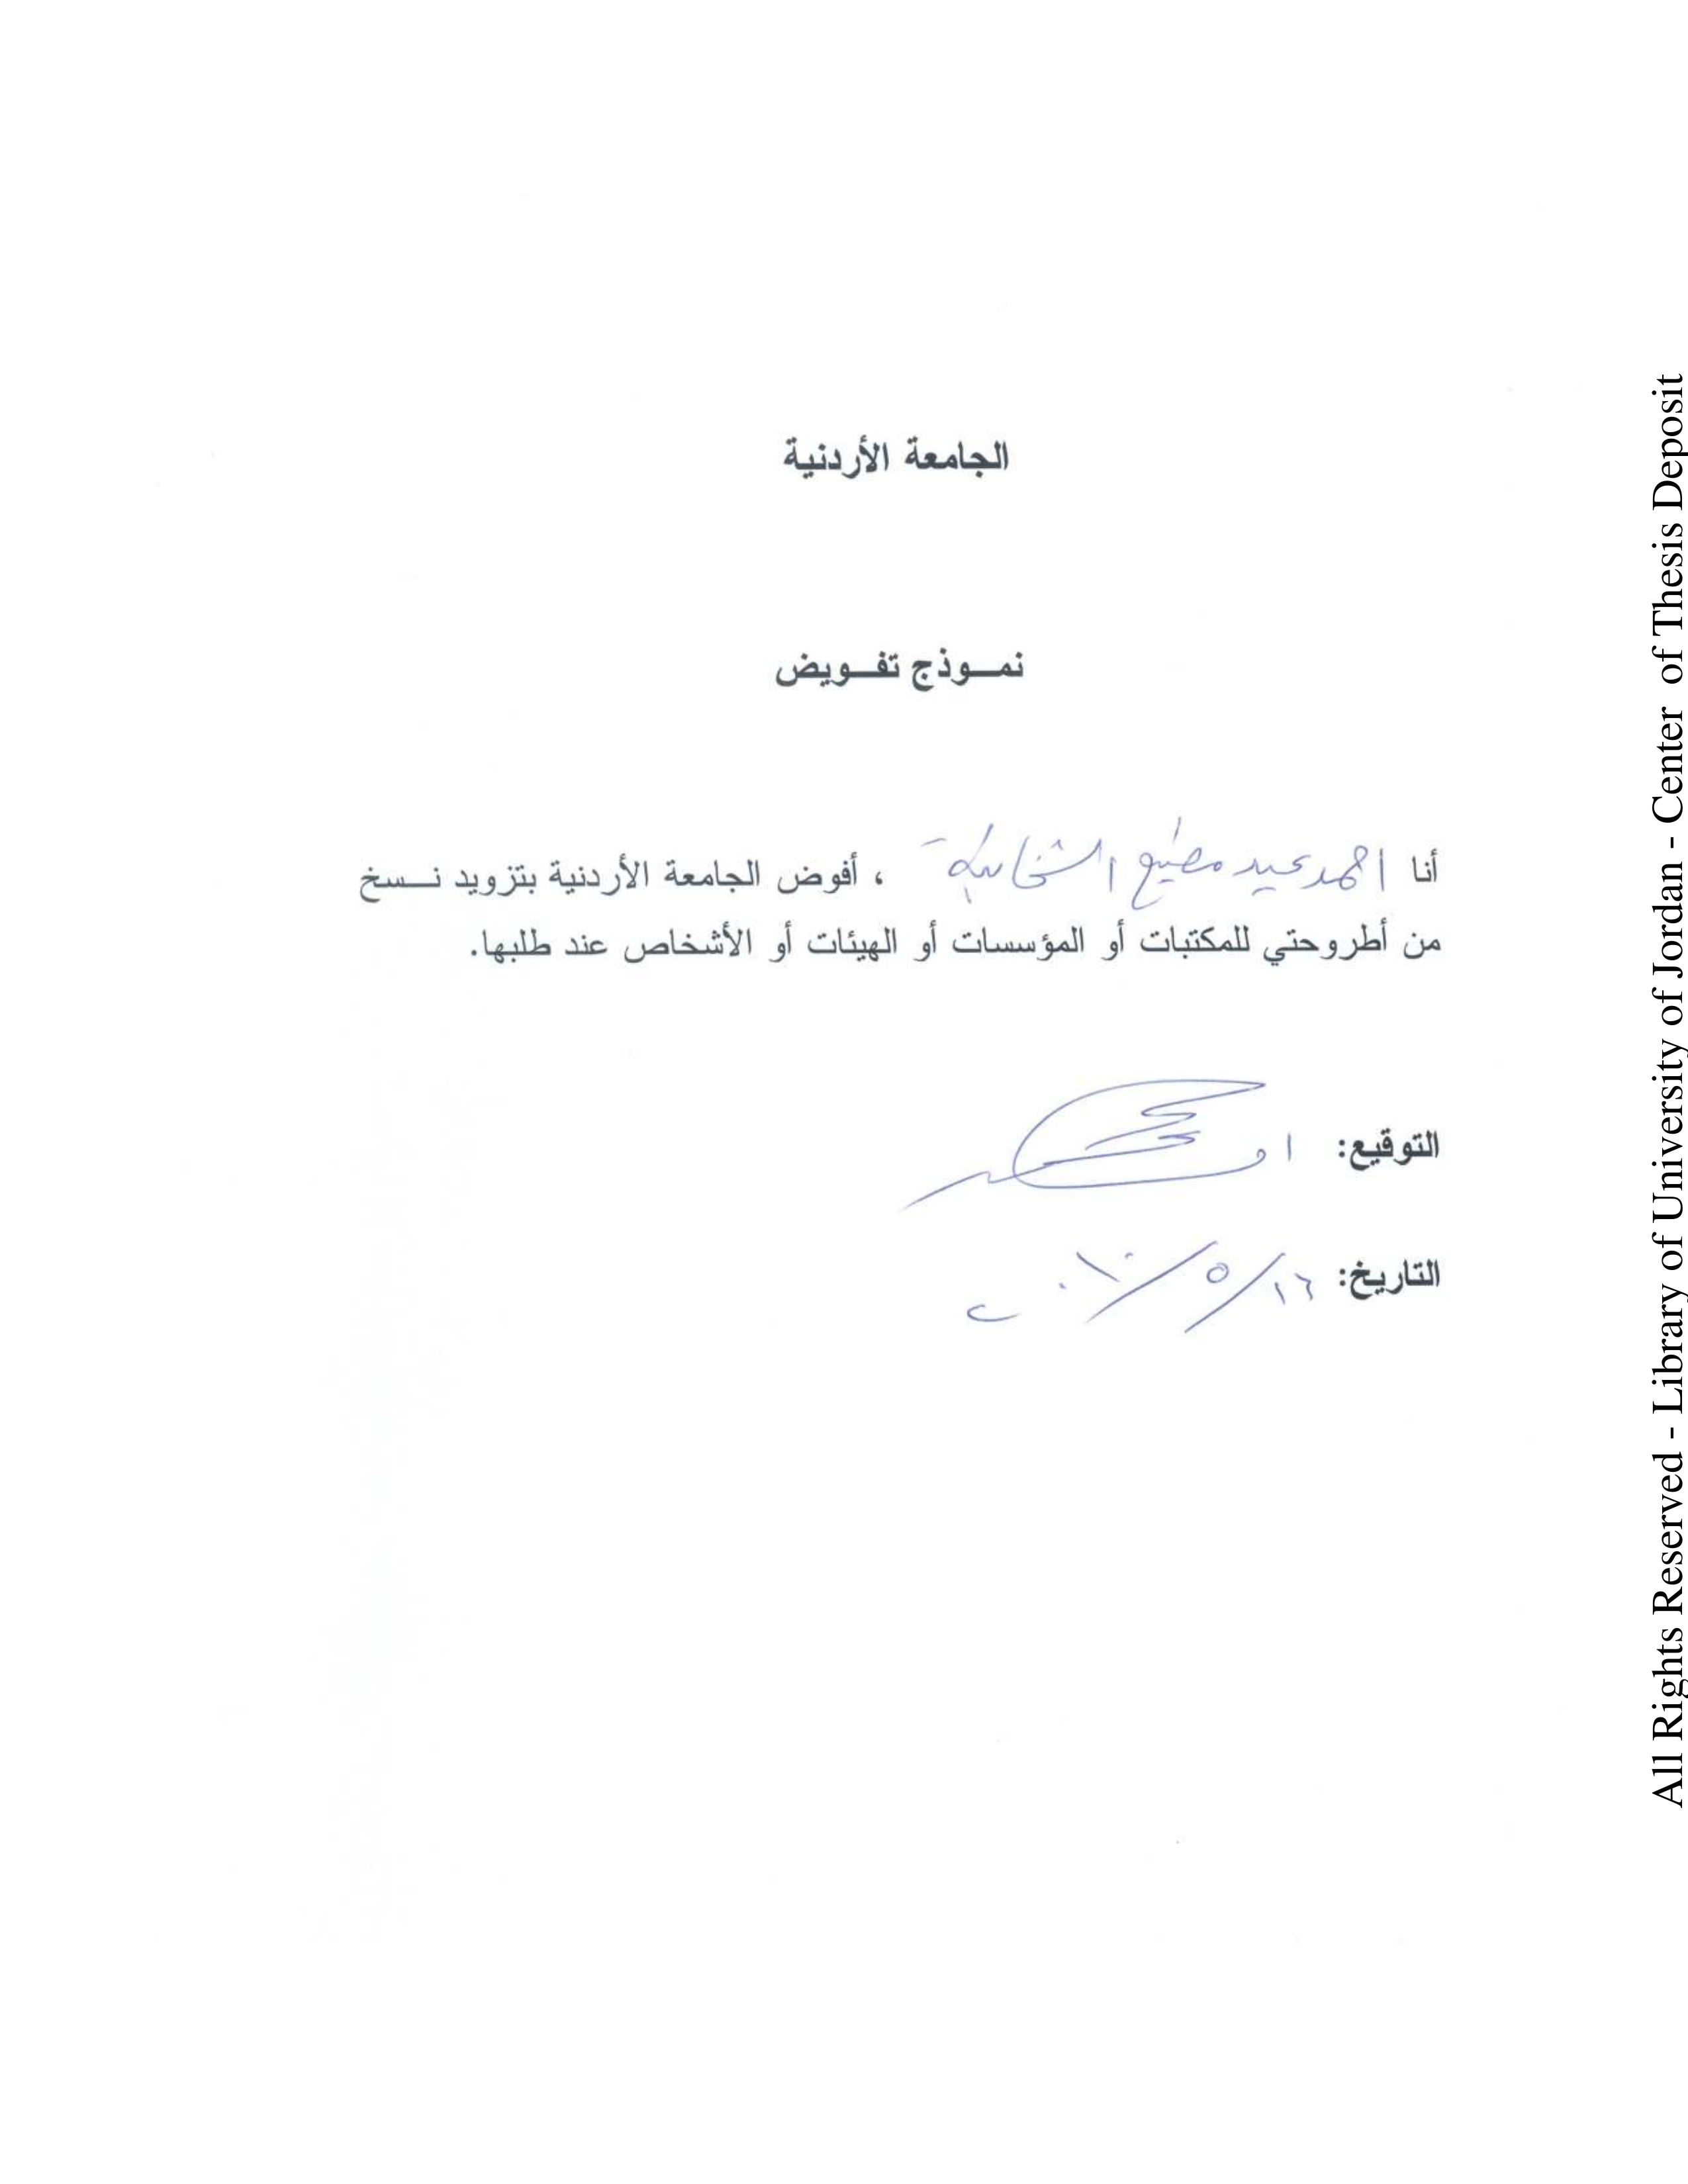 الجامعة الأردنية
نمـوذج تفـويض
أنا احمد عيد مطيع الشخانبة ، أفوض الجامعة الأردنية بتزويد نسخ
من أطروحتي للمكتبات أو المؤسسات أو الهيئات أو الأشخاص عند طلبها.
التوقيع:
التاريخ: ١٦/٥/٢٠١٠
All Rights Reserved - Library of University of Jordan - Center of Thesis Deposit